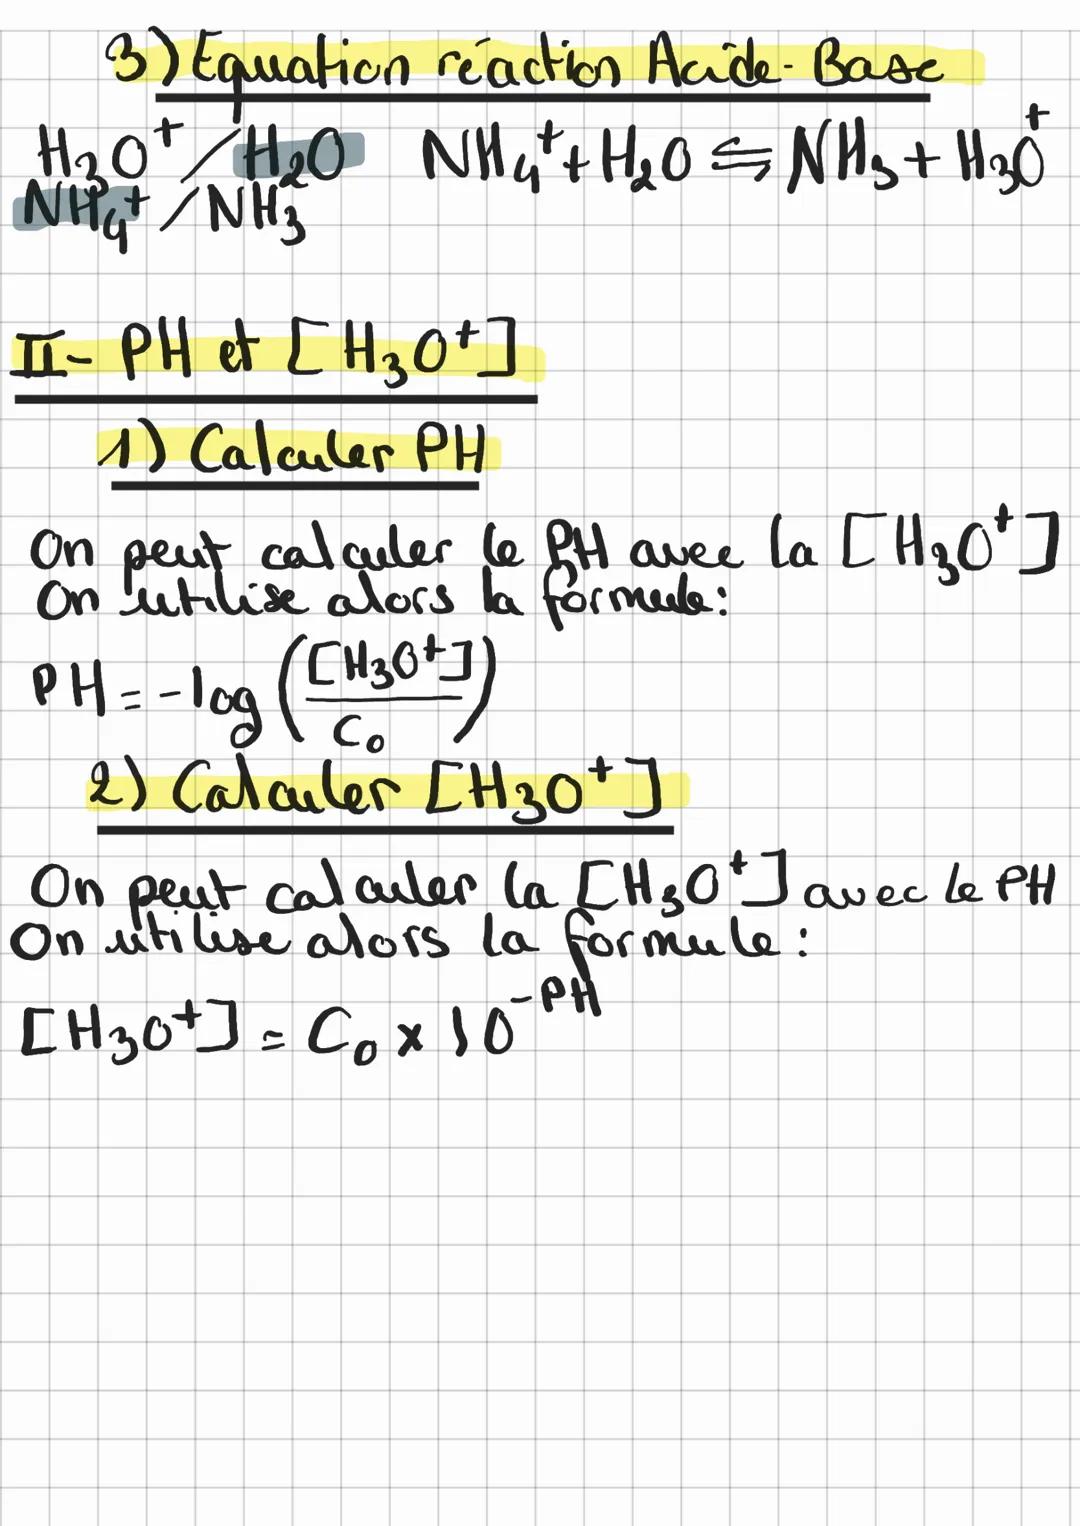 3) Equation réaction Acide-Base
H₃O⁺/H₂O NH₄⁺+H₂O ⇋ NH₃+H₃O⁺
NH₄⁺/NH₃
II- PH et [H₃O⁺]
1) Calculer PH
On peut calculer le PH avec la [H₃O⁺]
On utilise alors la formule:
PH=-log([H₃O⁺]/C₀)
2) Calculer [H₃O⁺]
On peut calculer la [H₃O⁺] avec le PH
On utilise alors la formule:
[H₃O⁺]=C₀×10⁻ᴾᴴ